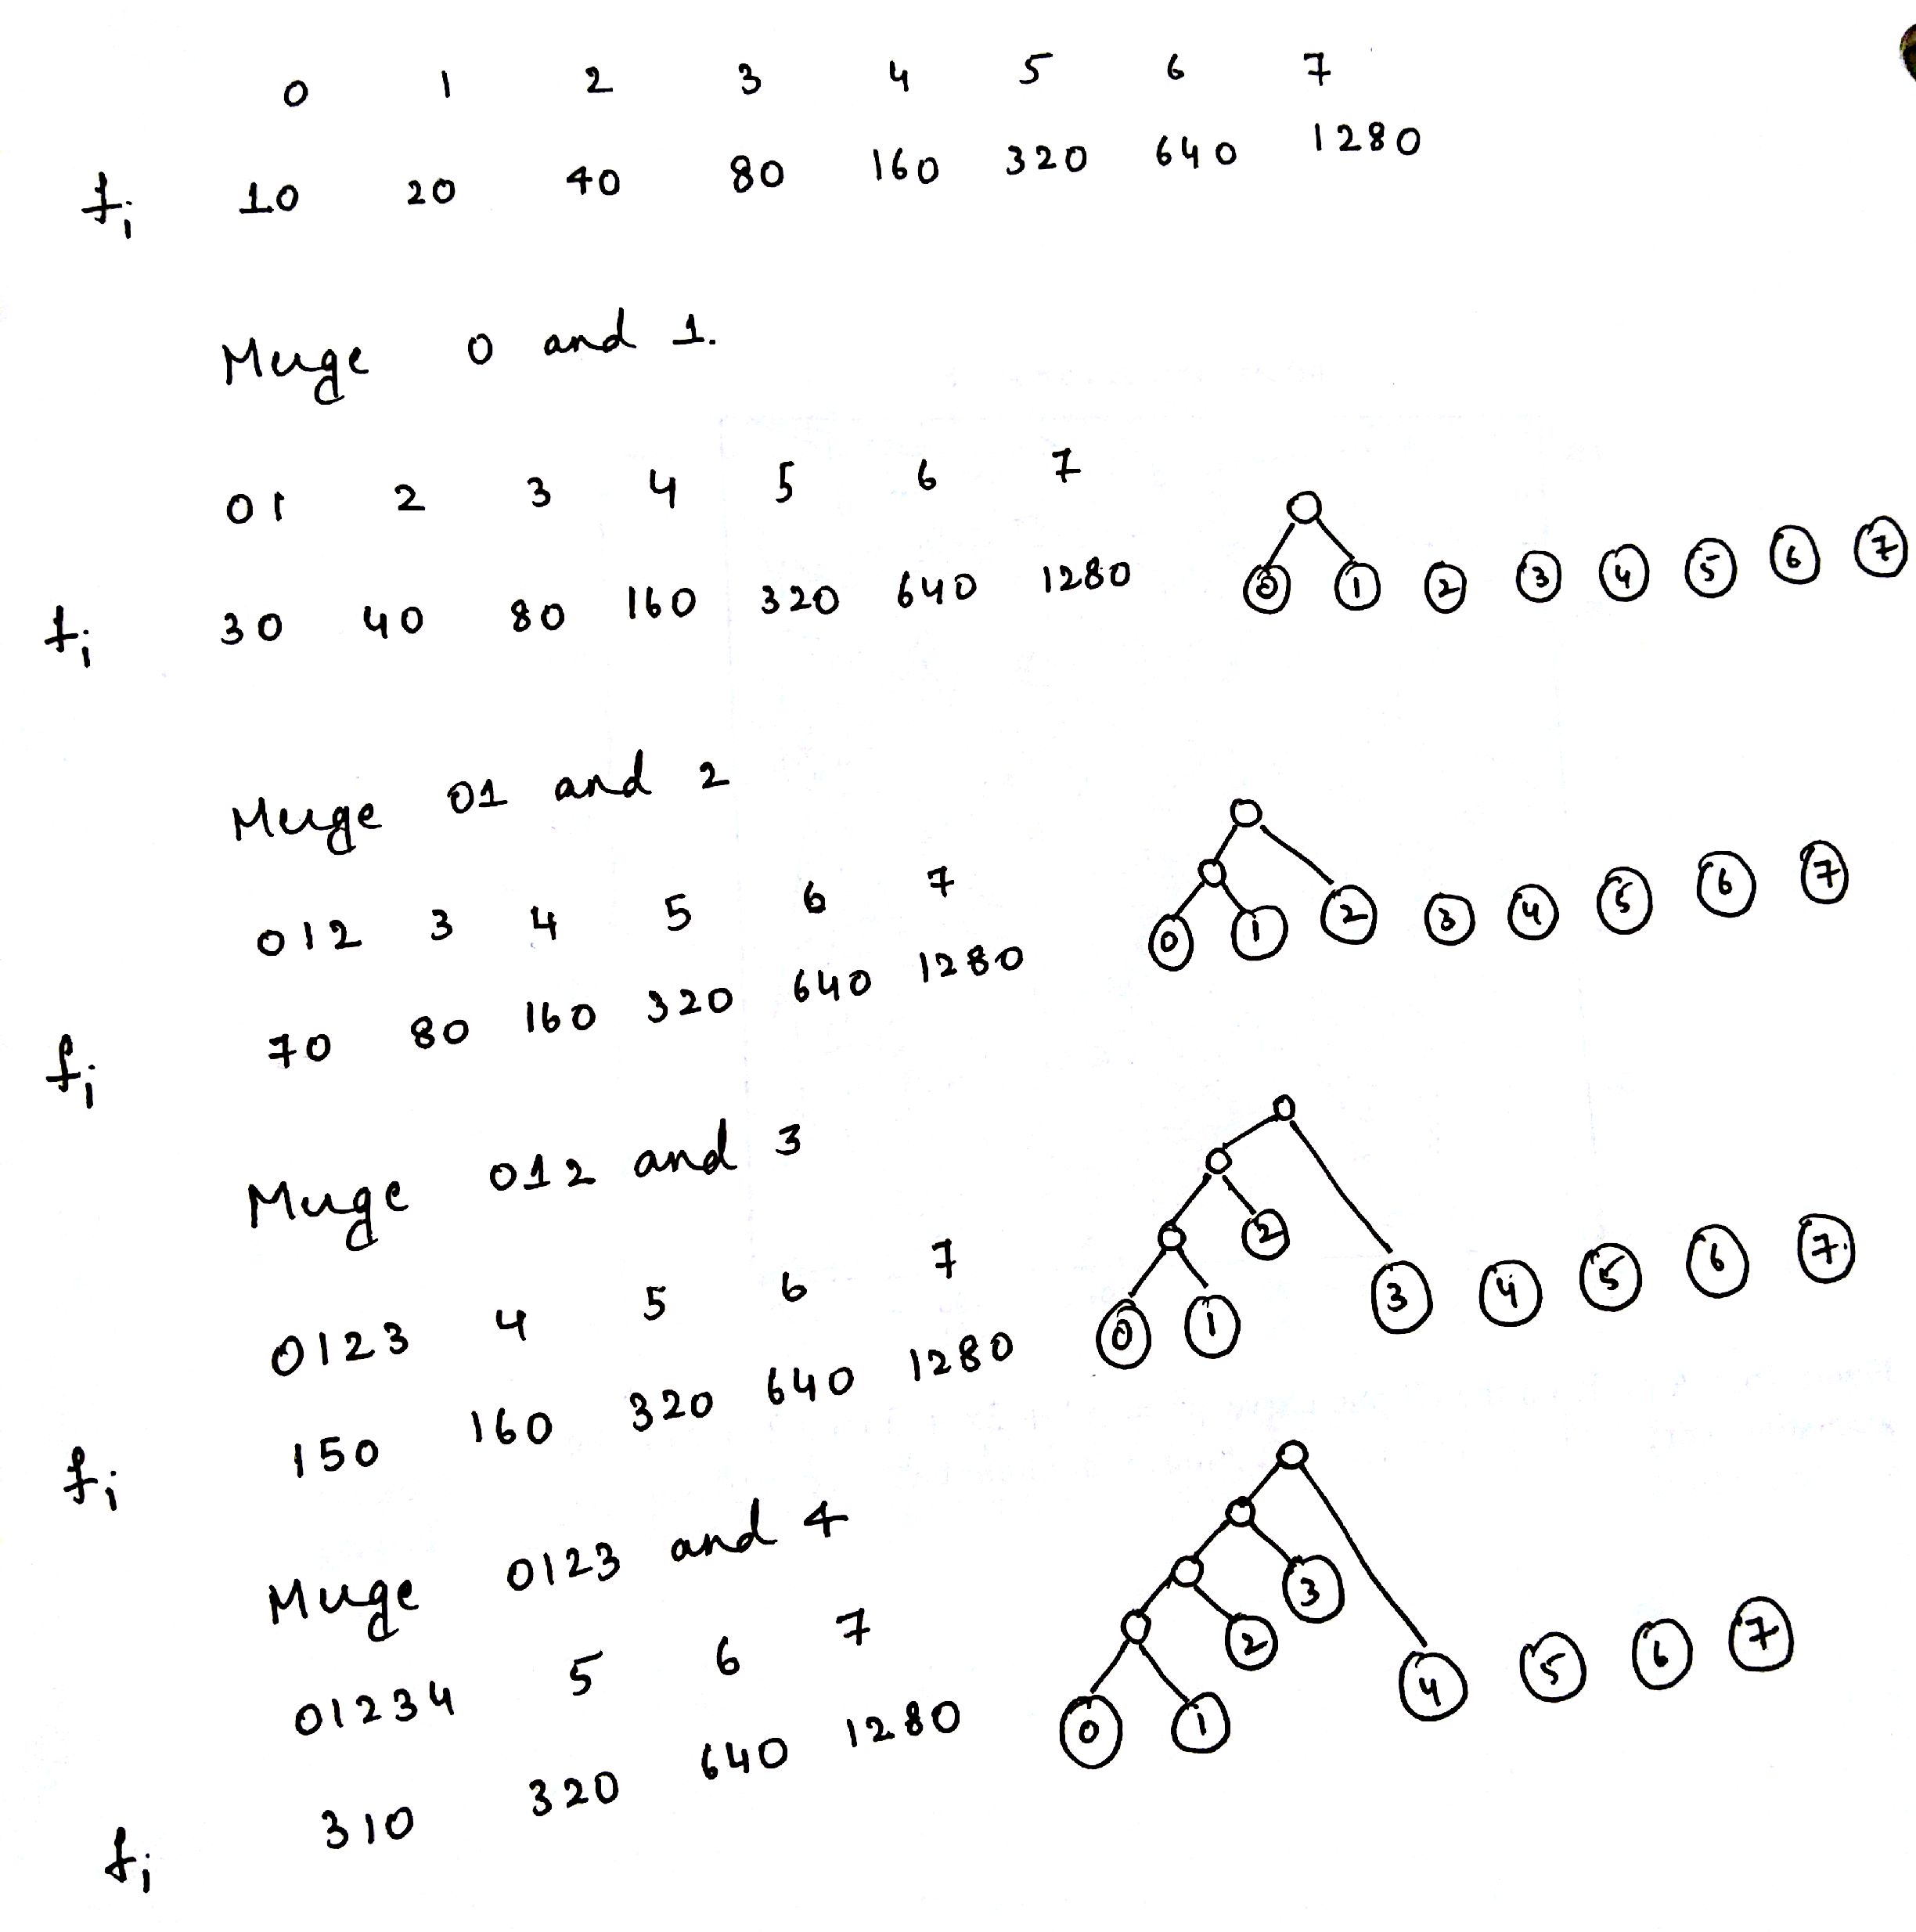 0 1 2 3 4 5 6 7
fi 10 20 40 80 160 320 640 1280
Merge 0 and 1.
01 2 3 4 5 6 7
fi 30 40 80 160 320 640 1280
0 1 2 3 4 5 6 7
Merge 01 and 2
012 3 4 5 6 7
fi 70 80 160 320 640 1280
0 1 2 3 4 5 6 7
Merge 012 and 3
0123 4 5 6 7
fi 150 160 320 640 1280
2
0 1 3 4 5 6 7
Merge 0123 and 4
01234 5 6 7
fi 310 320 640 1280
3
2
0 1 4 5 6 7